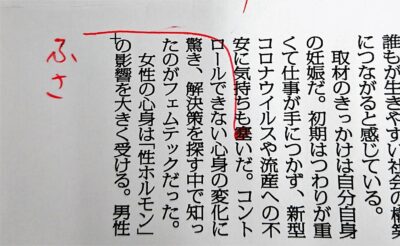 誰もが生きやすい社会の構築
につながると感じている。
取材のきっかけは自分自身
の妊娠だ。初期はつわりが重
くて仕事が手につかず、新型
コロナウイルスや流産への不
安に気持ちも塞いだ。コント
ロールできない心身の変化に
驚き、解決策を探す中で知っ
たのがフェムテックだった。
女性の心身は「性ホルモン」
の影響を大きく受ける。男性
ふさ